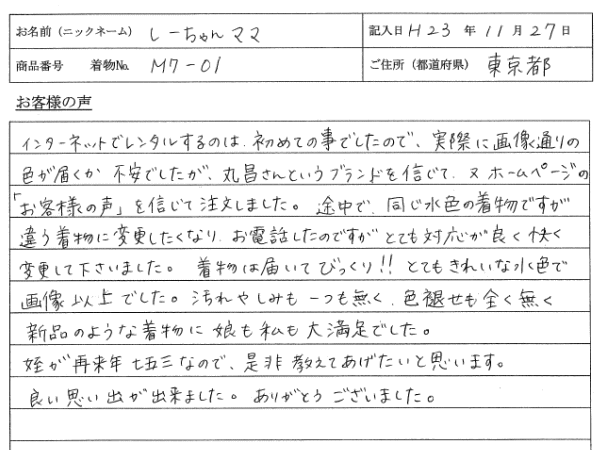 お名前（ニックネーム） しーちゃんママ 記入日 H23 年 11 月 27 日
商品番号 着物No. M7-01 ご住所（都道府県） 東京都
お客様の声
インターネットでレンタルするのは、初めての事でしたので、実際に画像通りの
色が届くか 不安でしたが、丸昌さんというブランドを信じて、又 ホームページの
「お客様の声」を信じて注文しました。 途中で、同じ水色の着物ですが
違う着物に変更したくなり、お電話したのですが とても対応が良く快く
変更して下さいました。 着物は届いてびっくり!! とてもきれいな水色で
画像以上でした。汚れやしみも 一つも無く、色褪せも全く無く
新品のような着物に 娘も私も大満足でした。
姪が再来年 七五三なので、是非 教えてあげたいと思います。
良い思い出が出来ました。ありがとう ございました。